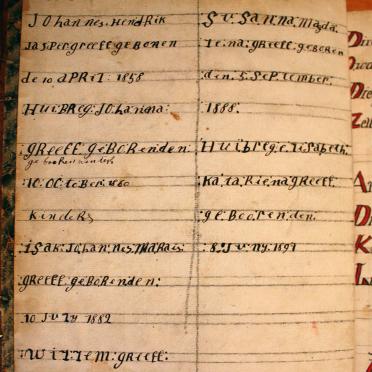 JOhannes.Hendrik
Jasper greeff geBoren
de 10 APRIL: 1858
HuiBreg: JOhanna:
greeff geBORenden:
10: OCtoBer: 1860
kinders
iSak: JOhannes: Marais:
greeff: geBORenden:
10 July 1882
:Willem: greeff:
SuSanna, Magda
le:na: greeff. geBoren
den: 5: SePtember:
1888:
HuiBreg: eliSabeth:
Ka:ta,Riena: greeff.
ge:Booren.den:
:8: Ju:ny. 1891